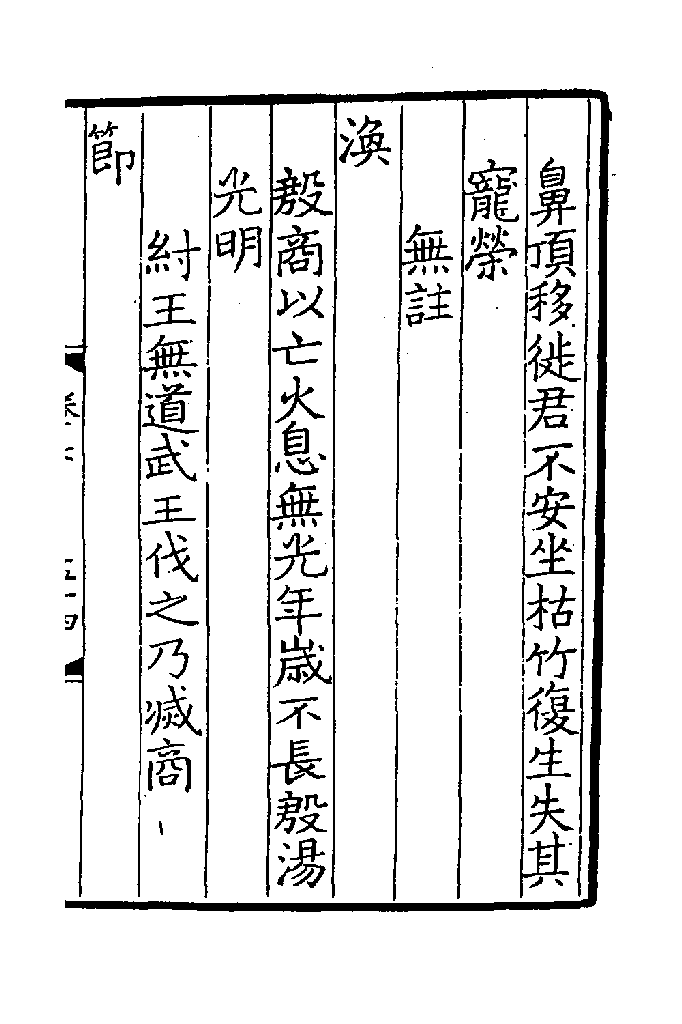 鼻頂移徙君不安坐枯竹復生失其
寵榮
無註
渙
殷商以亡火息無光年歲不長殷湯
光明
紂王無道武王伐之乃滅商
節